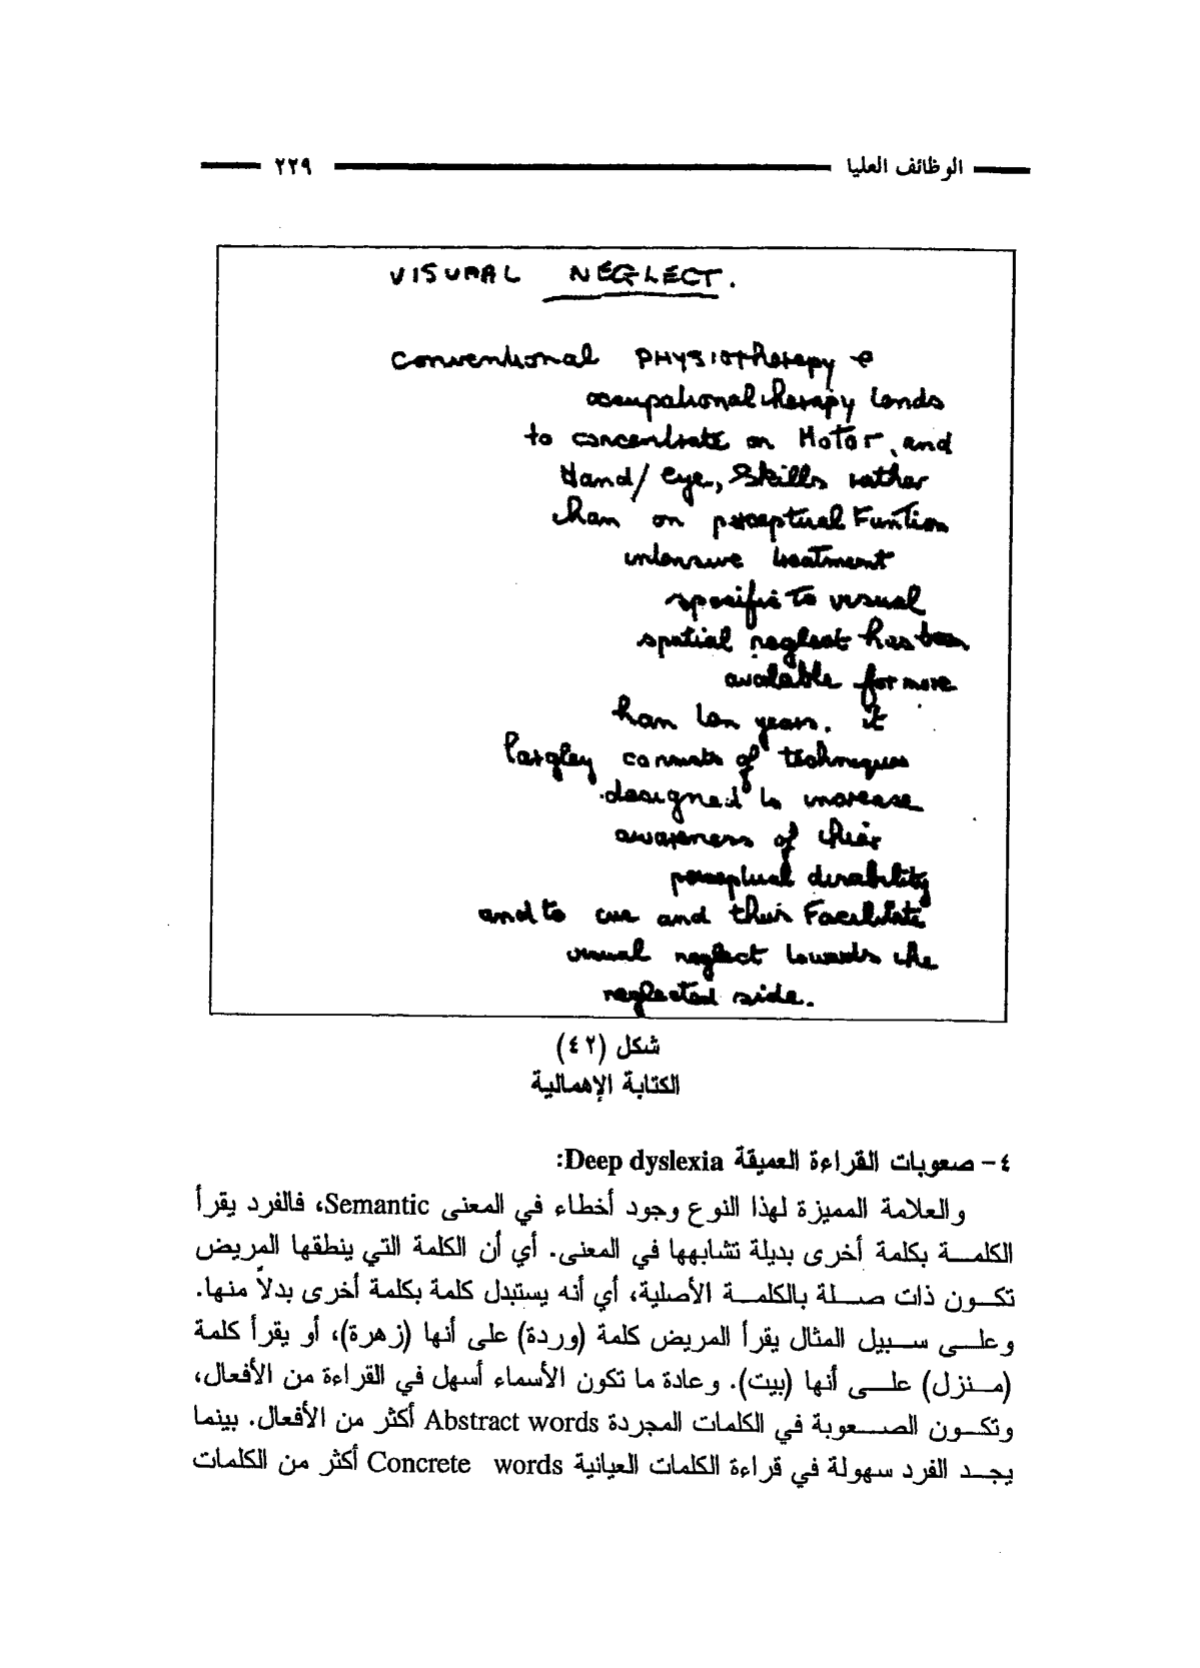 الوظائف العليا ٢٢٩
VISUAL NEGLECT.
conventional PHYSIOtherapy e
occupational therapy tends
to concentrate on Motor, and
Hand/eye, Skills rather
than on perceptual Funtion
intensive treatment
specific to visual
spatial neglect has been
available for more
than ten years. it
largley consists of techniques
designed to increase
awareness of their
perceptual disability
and to cue and their Facilitate
visual neglect towards the
neglected side.
شكل (٤٢)
الكتابة الإهمالية
٤- صعوبات القراءة العميقة Deep dyslexia:
والعلامة المميزة لهذا النوع وجود أخطاء في المعنى Semantic، فالفرد يقرأ
الكلمـــة بكلمة أخرى بديلة تشابهها في المعنى. أي أن الكلمة التي ينطقها المريض
تكـــون ذات صـــلة بالكلمـــة الأصلية، أي أنه يستبدل كلمة بكلمة أخرى بدلاً منها.
وعلـــى ســـبيل المثال يقرأ المريض كلمة (وردة) على أنها (زهرة)، أو يقرأ كلمة
(مـــنزل) علـــى أنها (بيت). وعادة ما تكون الأسماء أسهل في القراءة من الأفعال،
وتكـــون الصـــعوبة في الكلمات المجردة Abstract words أكثر من الأفعال. بينما
يجـــد الفرد سهولة في قراءة الكلمات العيانية Concrete words أكثر من الكلمات